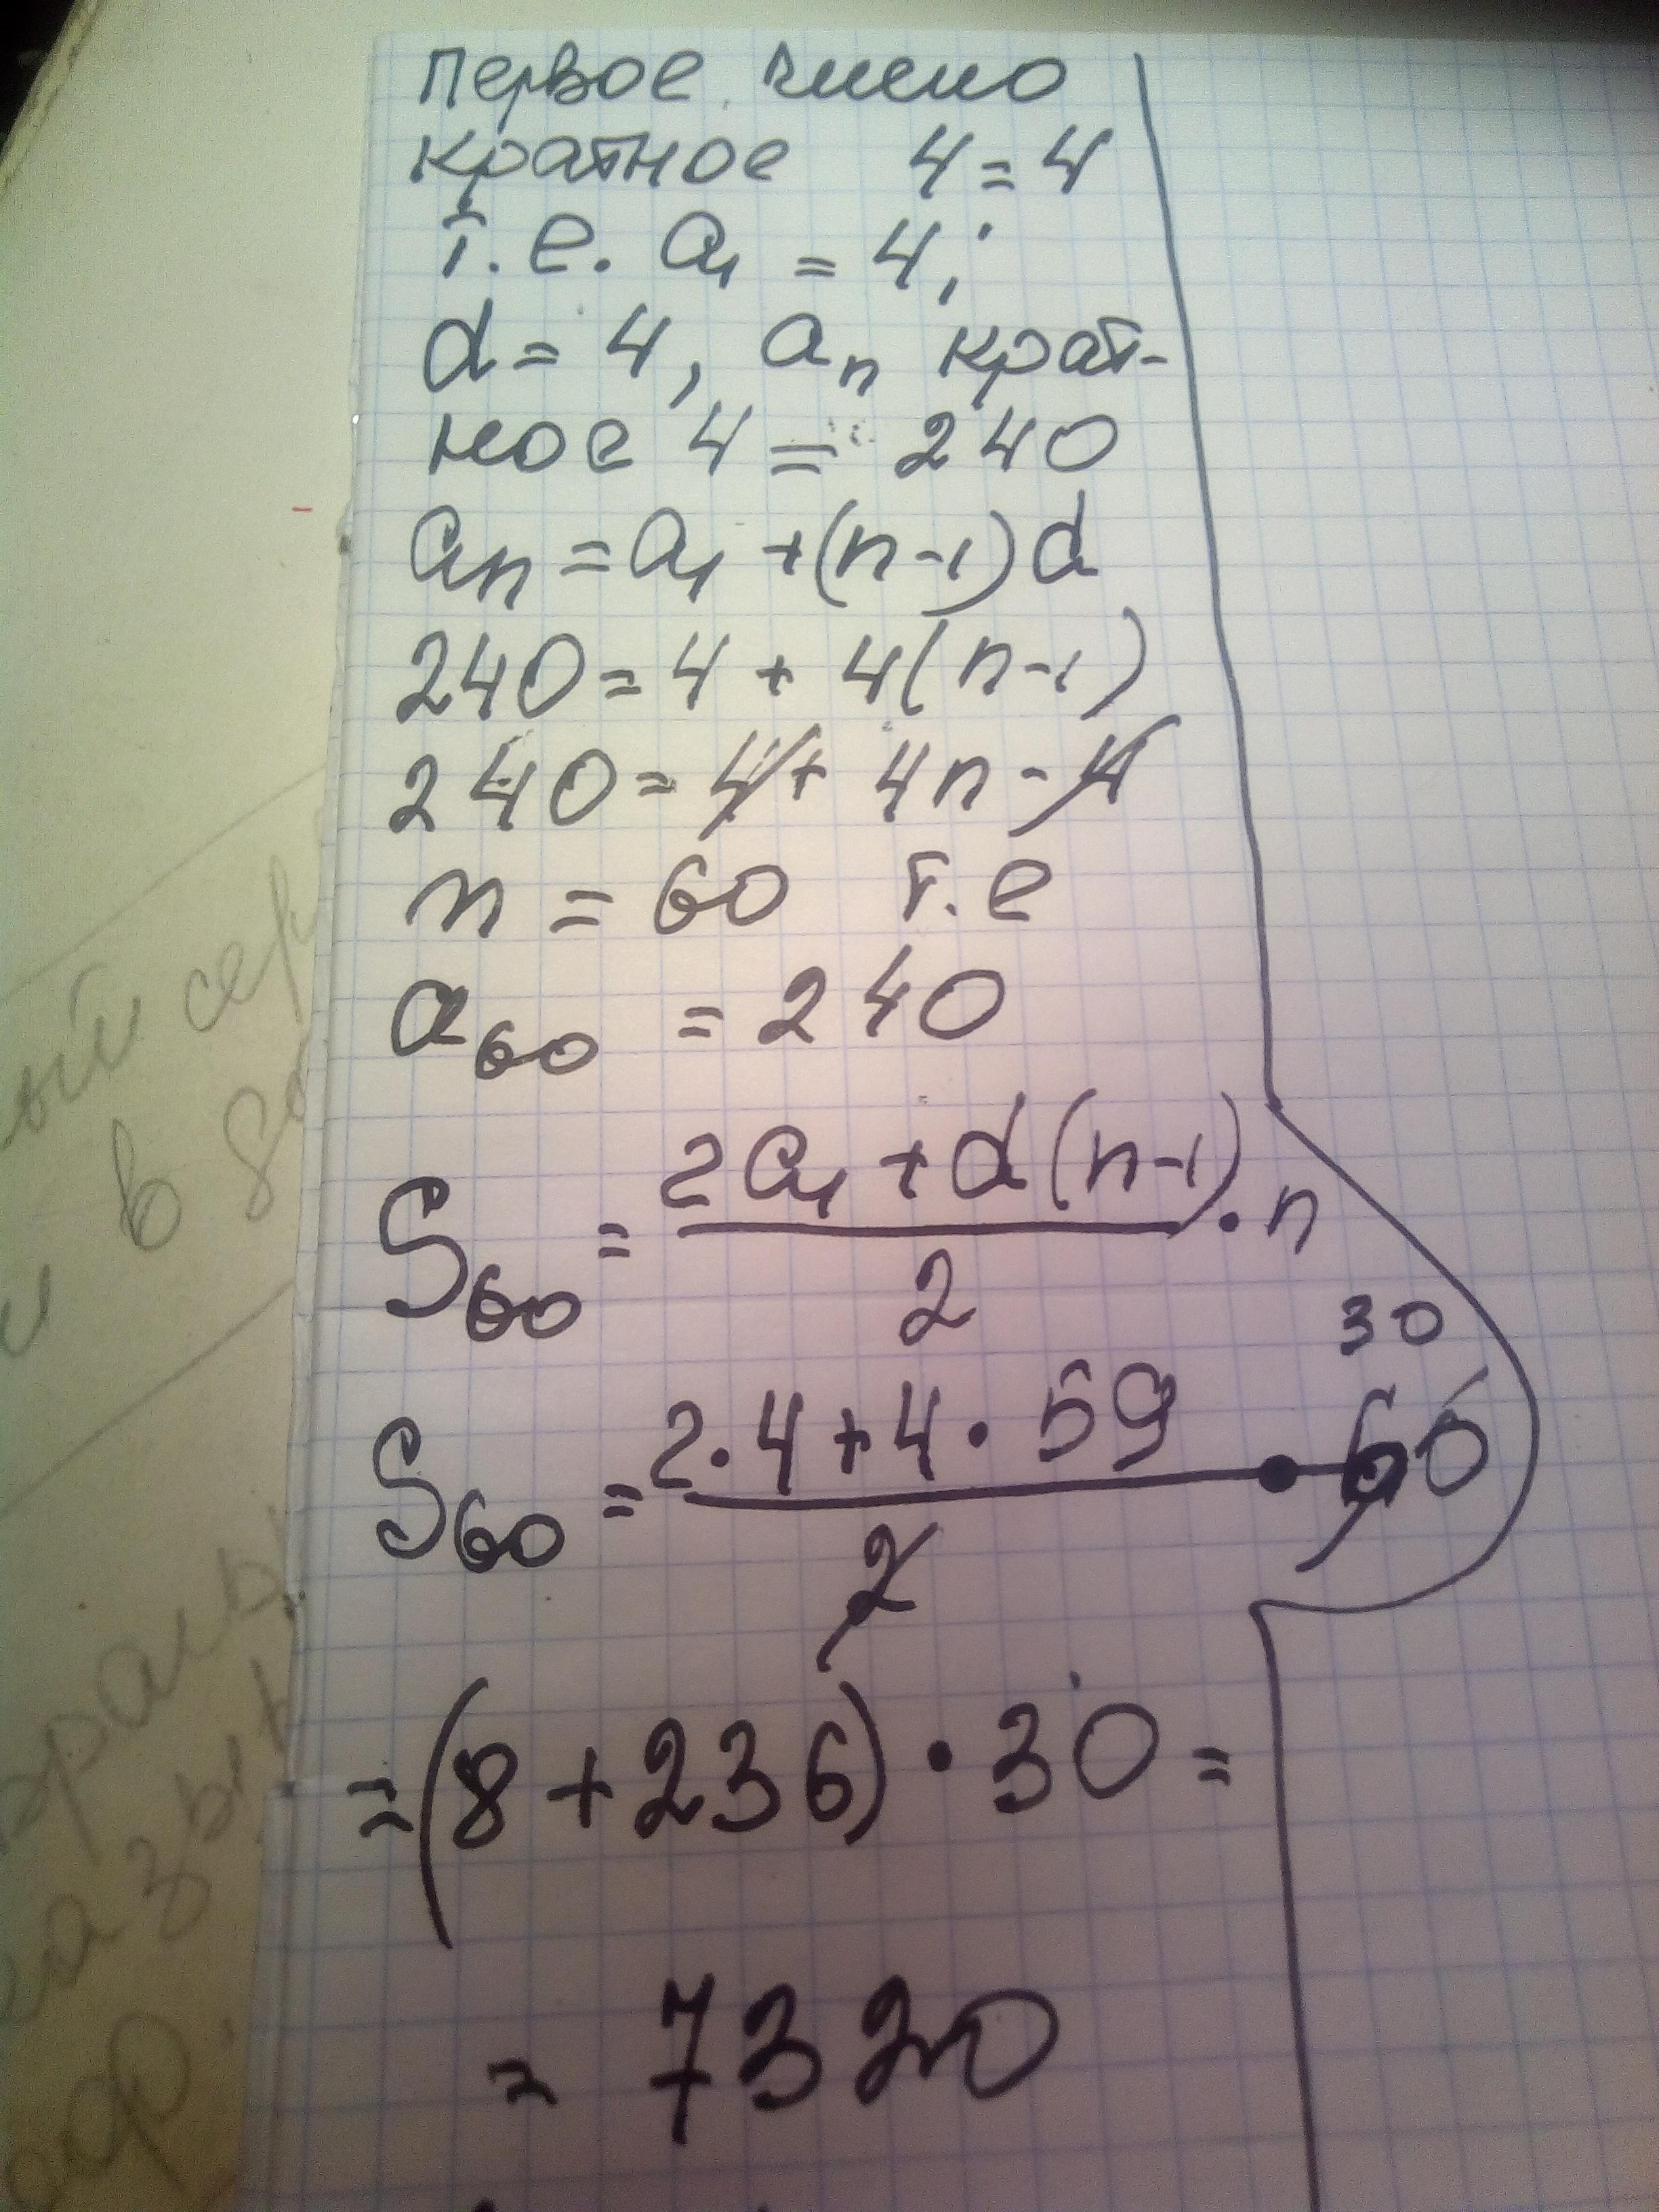 первое число
кратное 4 = 4
т.е. a₁ = 4;
d = 4, aₙ крат-
ное 4 = 240
aₙ = a₁ + (n-1)d
240 = 4 + 4(n-1)
240 = 4 + 4n - 4
n = 60 т.е
a₆₀ = 240
S₆₀ = (2a₁ + d(n-1))/2 · n
30
S₆₀ = (2·4 + 4·59)/2 · 60
= (8 + 236) · 30 =
= 7320
ый сер
в 80